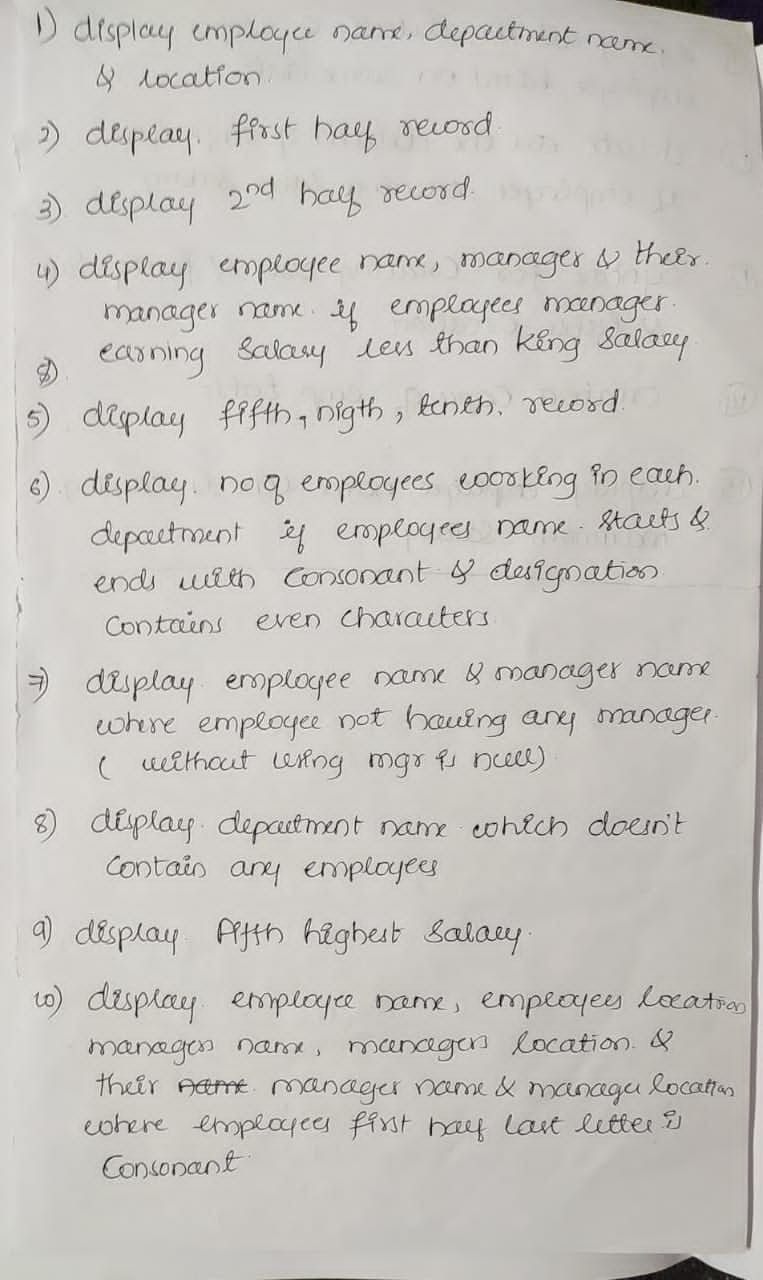 1) display employee name, department name,
& location.
2) display. first half record.
3) display 2nd half record.
4) display employee name, manager & their.
manager name. if employees manager.
earning salary less than king salary
5) display fifth, nigth, tenth. record.
6). display. no of employees working in each.
department if employees name. starts &
ends with consonant & designation
contains even characters
7) display employee name & manager name
where employee not having any manager.
( without using mgr is null)
8) display. department name which doesn't
contain any employees
9) display fifth highest salary.
10) display employee name, employees location
managers name, managers location. &
their name manager name & manager location
where employees first half last letter is
consonant.